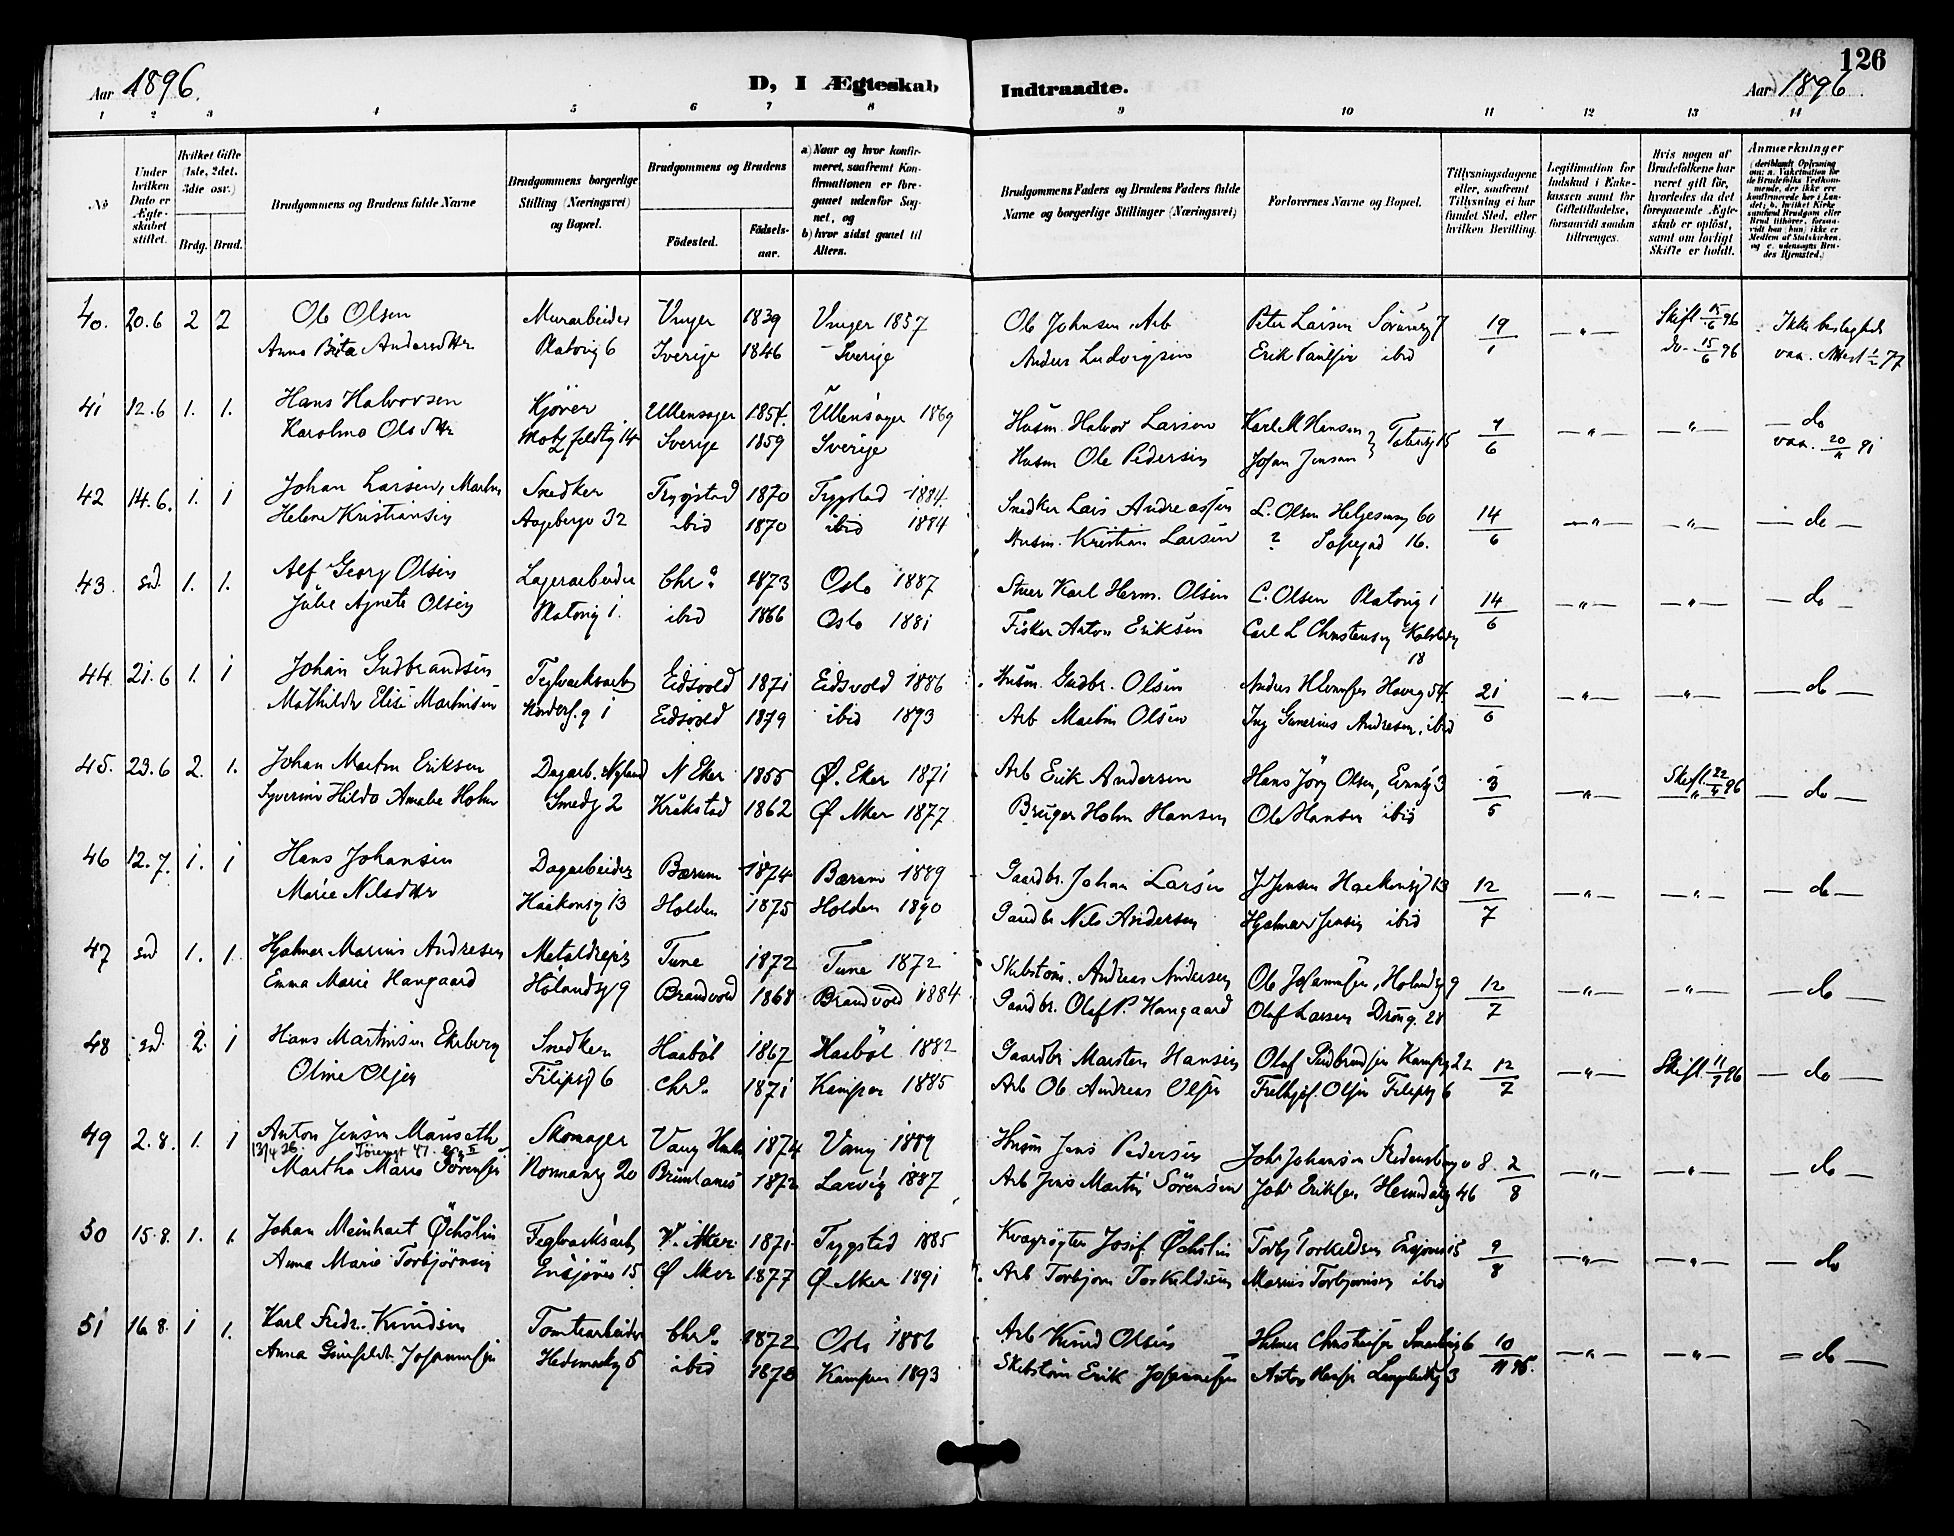 126
Aar 1896.
D, I Ægteskab
Indtraadte.
Aar 1896
1 2 3 4 5 6 7 8 9 10 11 12 13 14
No
Under hvilken Dato er Ægteskabet stiftet.
Hvilket Gifte (1ste, 2det, 3die osv.)
Brdg. Brud.
Brudgommens og Brudens fulde Navne
Brudgommens borgerlige Stilling (Næringsvei) og Bopæl.
Brudgommens og Brudens
Födested.
Födselsaar.
a) Naar og hvor konfirmeret, saafremt Konfirmationen er foregaaet udenfor Sognet, og
b) hvor sidst gaaet til Alters.
Brudgommens Faders og Brudens Faders fulde Navne og borgerlige Stillinger (Næringsvei)
Forlovernes Navne og Bopæl.
Tillysningsdagene eller, saafremt Tillysning ei har fundet Sted, efter hvilken Bevilling.
Legitimation for Indskud i Enkekassen samt for Giftetilladelse, forsaavidt saadan tiltrænges.
Hvis nogen af Brudefolkene har været gift før, hvorledes da det foregaaende Ægteskab er opløst, samt om lovligt Skifte er holdt.
Anmærkninger
40. 20.6 2 2 Ole Olsen Murarbeider Vinger 1839 Vinger 1857 Ole Johnsen Arb Peter Larsen 19 — " — Skift 15/6 96 Ikke beslægtede
Anna Brita Andersdtr Platovig 6 Sverige 1846 Sverige Anders Ludvigsen Erik Paulsen ibid do 15/6 96
41 12.6 1. 1. Hans Halvorsen Kjører Ullensager 1854 Ullensager 1869 Husm. Halvor Larsen Karl M Hansen 7/6 — " — — " — — do
Karolina Olsdtr Sverige 1859 Sverige Husm Ole Pedersen Johan Jensen
42 14.6. 1. 1 Johan Larsen Snedker Trygstad 1870 Trygstad 1884 Snedker Lars Andreassen L. Olsen Helgesensg 60 14/6 — " — — " — — do —
Helene Kristiansen Aageberga 32 ibid 1870 ibid 1884 Husm. Kristian Larsen ? Sofiegad 16.
43. sd. 1. 1. Alf Georg Olsen Lagerarbeider Chra. 1873 Oslo 1887 Karl Herm. Olsen C. Olsen Platovig 1 14/6 — " — — " — — do —
Julie Agnete Olsen Platovig 1. ibid 1866 Oslo 1881 Fisker Anton Eriksen Carl L Christensen 18
44. 21.6 1. 1 Johan Gudbrandsen Teglværksarb Eidsvold 1871 Eidsvold 1886 Husm. Gudbr. Olsen 21/6 — " — — " — — do —
Mathilde Elise Martinsen Eidsvold 1879 ibid 1893 Arb Martin Olsen Andresen. ibid
45. 23.6 2. 1. Johan Martin Eriksen Dagarb. Nyland N Eker 1855 Ø. Eker 1871 Arb Erik Andersen Hans Jörg Olsen, 3 3/5 — " — Skift. 22/4 96 — do —
Hilda Amalie Holm Smedg 2 Kråkstad 1862 Ø Aker 1877 Bruger Holm Hansen Ole Hansen ibid
46 12.7. 1. 1 Hans Johansen Dagarbeider Bærum 1874 Bærum 1889 Gaardbr. Johan Larsen J Jensen Haakonsg 13 12/7 — " — — " — — do —
Marie Nilsdtr Haakonsg 13 Holden 1875 Holden 1890 Gaardbr Nils Andersen Hjalmar Jensen ibid
47 sd 1. 1. Hjalmar Marius Andresen Metaldreier Tune 1872 Tune 1872 Skibstöm. Andreas Andersen Ole Johannesen, Holandsg 9 12/7 — " — — " — — do —
Emma Marie Haugaard Hölandsg 9 Brandvold 1868 Brandvold 1884 Gaardbr. Olaf P. Haugaard Olaf Larsen
48 sd. 2. 1 Hans Martinsen Ekeberg Snedker Haabøl 1867 Haabøl 1882 Gaardbr Marten Hansen Olaf 22 12/7 — " — Skift. 11/7 96 — do —
Oline Olsen Filipsg 6 Chra. 1871 Kampen 1885 Arb Ole Andreas Olsen Olsen Filipsg 6
49 2.8. 1. 1 Anton Jensen Mauseth Skomager Vang 1874 Vang 1889 Husm Jens Pedersen Johs Johansen 8. 2/8 — " — — " — — do —
13/4 26.
Martha Marie Sörensen Normansg 20 Brunlanes 1872 Larvig 1887 Arb Jens Martin Sörensen Johs Eriksen 46
50 15.8. 1. 1. Johan Meinhart Öchslin Teglværksarb V. Aker 1871 Trygstad 1885 Kvægrögter Josef Öchslin Torbj Torkeldsen Ensjøvei 15 9/8 — " — — " — — do
Anna Marie Torbjörnsen Ensjövei 15 Ø Aker 1877 Ø Aker 1891 Arb Torbjörn Torkildsen Marius Torbjörnsen ibid
51 16.8. 1 1. Karl Fredr. Knudsen Tomtearbeider Chra. 1872 Oslo 1886 Arb Knud Olsen 6 10 — " — — " — — do —
Anna Johannesen Hedemarksg 5 ibid 1878 Kampen 1893 Skibstöm Erik Johannesen Anton Hansen 3